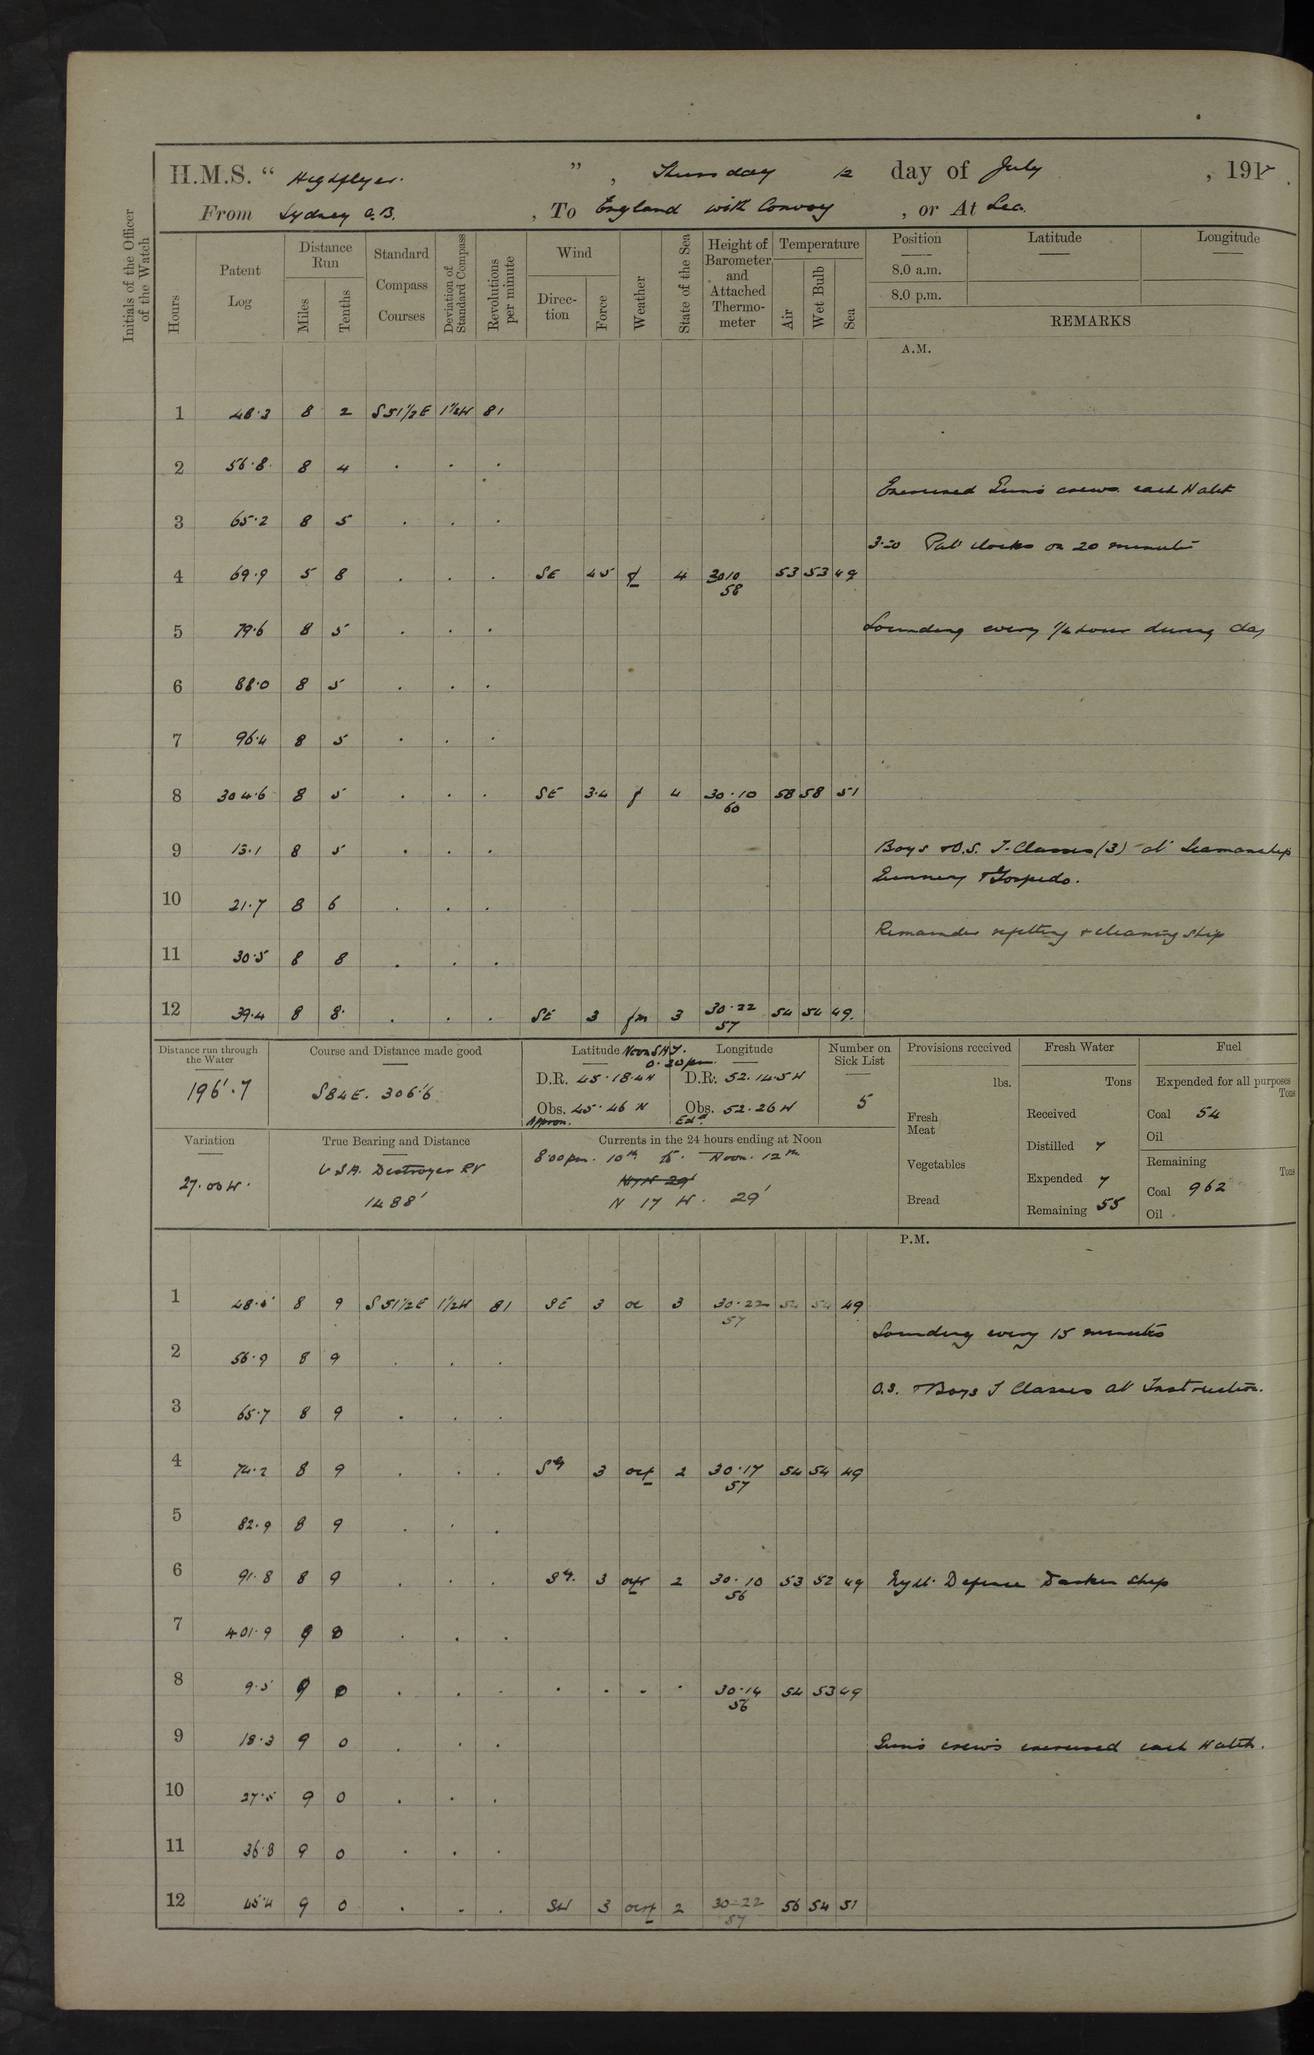 H.M.S. “ Highflyer. ” , Thursday 12 day of July , 1917.
From Sydney C.B. , To England with Convoy , or At Sea.
Initials of the Officer of the Watch
Hours Patent Log Distance Run Miles Tenths Standard Compass Courses Deviation of Standard Compass Revolutions per minute Wind Direction Force Weather State of the Sea Height of Barometer and Attached Thermometer Temperature Air Wet Bulb Sea
Position Latitude Longitude
8.0 a.m.
8.0 p.m.
REMARKS
A.M.
1 48.3 8 2 S51½E 1½W 81
2 56.8 8 4 . . .
Exercised Guns crews each Watch
3 65.2 8 5 . . .
3.20 Put clocks on 20 minutes
4 69.9 5 8 . . . SE 4.5 f 4 3010 58 53 53 49
5 79.6 8 5 . . . Sounding every ¼ hour during day
6 88.0 8 5 . . .
7 96.4 8 5 . . .
8 304.6 8 5 . . . SE 3.4 f 4 30.10 60 58 58 51
9 13.1 8 5 . . . Boys & O.S. T. Classes (3) at Seamanship
Gunnery & Torpedo.
10 21.7 8 6 . . .
Remainder refitting & cleaning ship
11 30.5 8 8 . . .
12 39.4 8 8 . . . SE 3 fm 3 30.22 57 54 54 49.
Distance run through the Water
196'.7
Course and Distance made good
S84E. 306.6
Latitude Noon SHT. 0.30pm Longitude
D.R. 45.18.4N D.R. 52.14.5W
Obs. 45.46 N Obs. 52.26 W
Approx.
Number on Sick List
5
Provisions received
lbs.
Fresh Meat
Vegetables
Bread
Fresh Water
Tons
Received
Distilled 7
Expended 7
Remaining 55
Fuel
Expended for all purposes
Tons
Coal 54
Oil
Remaining
Tons
Coal 962
Oil
Variation
27.00W.
True Bearing and Distance
USA. Destroyer RV
1488'
Currents in the 24 hours ending at Noon
8.00pm. 10th to Noon. 12th
N 17 W. 29'
P.M.
1 8 9 S51½E 1½W 81 SE 3 oc 3 30.22 57 54 54 49
Sounding every 15 minutes
2 56.9 8 9 . . .
O.S. & Boys T Classes at Instruction.
3 65.7 8 9 . . .
4 74.2 8 9 . . . 3 ocf 2 30.17 57 54 54 49
5 82.9 8 9 . . .
6 91.8 8 9 . . . 3 2 30.10 56 53 52 49 Defence Darken Ship
7 401.9 9 0 . . .
8 9.5 9 0 . . . . . . . 30.14 56 54 53 49
9 18.3 9 0 . . . Guns crews exercised each Watch.
10 27.5 9 0 . . .
11 36.8 9 0 . . .
12 45.4 9 0 . . . SW 3 2 30.22 57 56 54 51